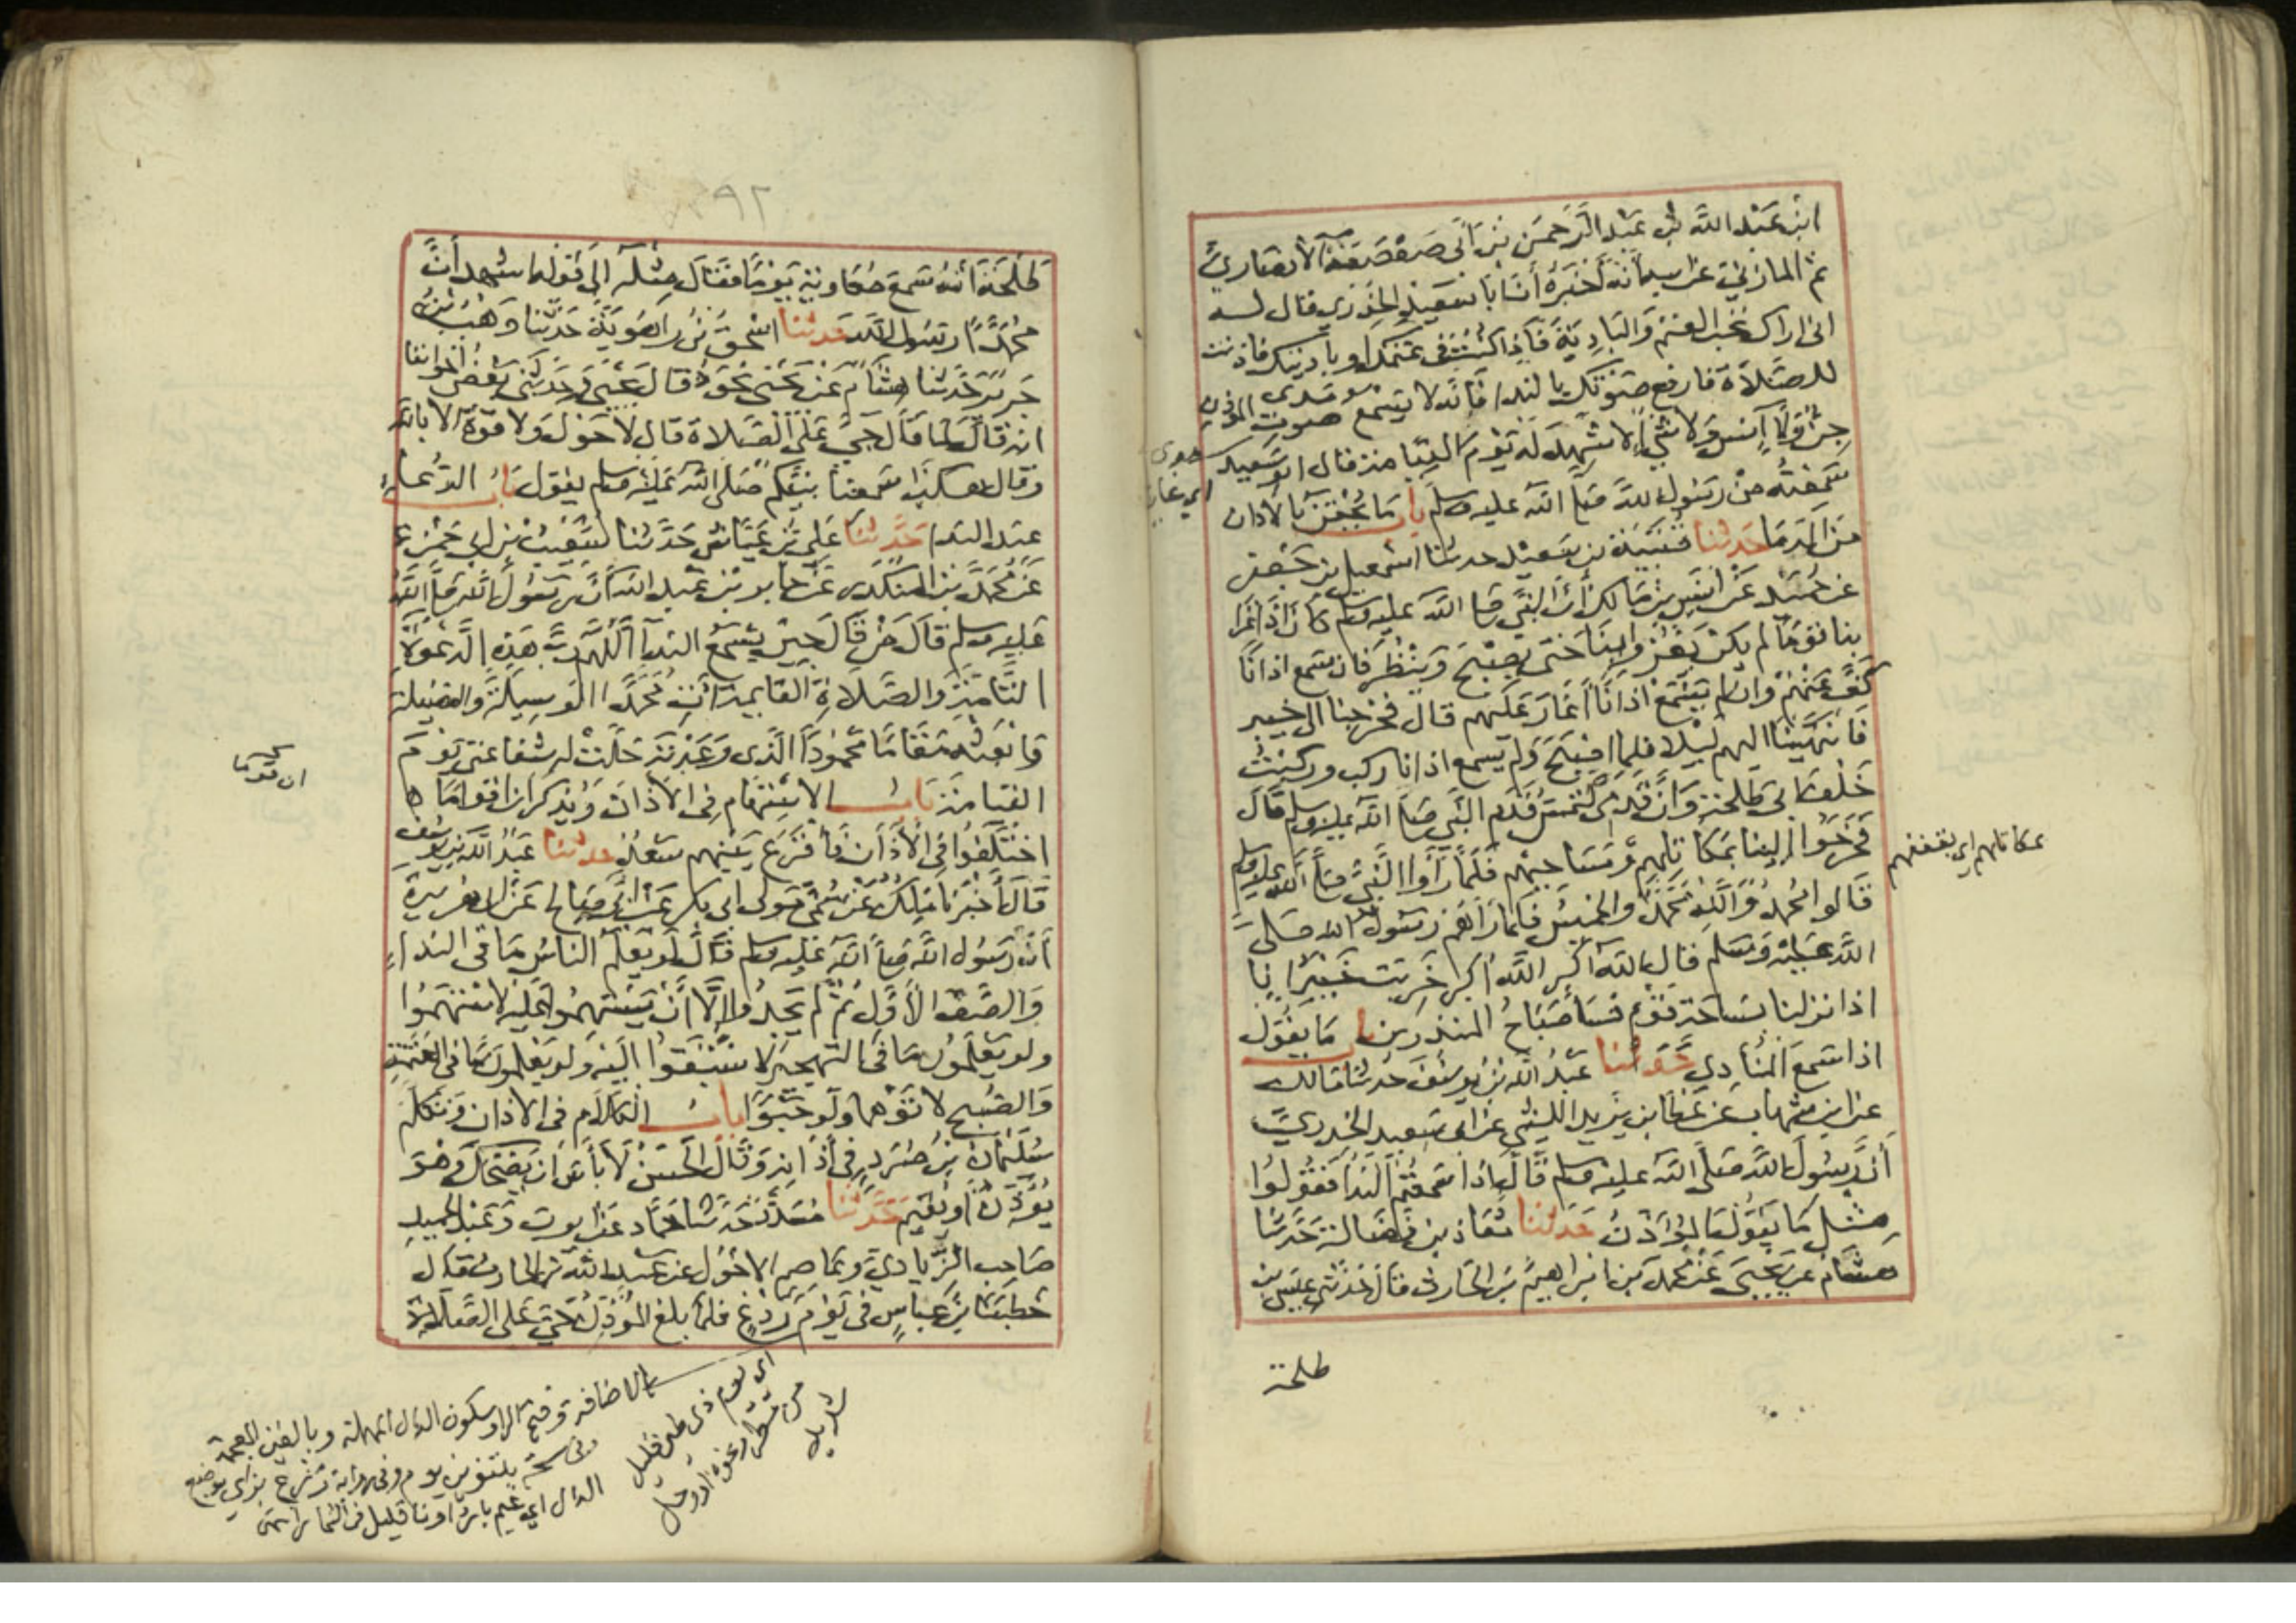 ابن عبد الله بن عبد الرحمن بن ابي صعصعة الانصاري
ثم المازني عن ابيه انه اخبره أن ابا سعيد الخدري قال له
اني اراك تحب الغنم والبادية فاذا كنت في غنمك او باديتك فاذنت
للصلاة فارفع صوتك بالنداء فانه لا يسمع مدى صوت المؤذن
جن ولا انس ولا شيء الا شهد له يوم القيامة قال ابو سعيد
سمعته من رسول الله صلى الله عليه وسلم باب ما يحقن بالاذان
من الدما حدثنا قتيبة بن سعيد حدثنا اسمعيل بن جعفر
عن حميد عن انس بن مالك أن النبي صلى الله عليه وسلم كان اذا غزا
بنا قوما لم يكن يغزو بنا حتى يصبح وينظر فان سمع اذانا
كف عنهم وان لم يسمع اذانا اغار عليهم قال فخرجنا الى خيبر
فانتهينا اليهم ليلا فلما اصبح ولم يسمع اذانا ركب وركبت
خلف ابي طلحة وان قدمي لتمس قدم النبي صلى الله عليه وسلم قال
فخرجوا الينا بمكاتلهم ومساحيهم فلما رأوا النبي صلى الله عليه وسلم
قالوا محمد والله محمد والخميس فلما رآهم رسول الله صلى
الله عليه وسلم قال الله أكبر الله أكبر خربت خيبر انا
اذا نزلنا بساحة قوم فسا صباح المنذرين باب ما يقول
اذا سمع المنادي حدثنا عبد الله بن يوسف حدثنا مالك
عن ابن شهاب عن عطا بن يزيد الليثي عن ابي سعيد الخدري
أن رسول الله صلى الله عليه وسلم قال اذا سمعتم الندا فقولوا
مثل ما يقول المؤذن حدثنا معاذ بن فضالة حدثنا
هشام عن يحيى عن محمد بن ابراهيم بن الحارث قال حدثني عيسى بن
طلحة
بمكاتلهم اي بقففهم
طلحة أنه سمع معاوية يوما فقال مثله إلى قوله اشهد أن
محمدا رسول الله حدثنا اسحق بن راهوية حدثنا وهب بن
جرير حدثنا هشام عن يحيى نحوه قال يحيى وحدثني بعض اخواننا
انه قال لما قال حي على الصلاة قال لا حول ولا قوة الا بالله
وقال هكذا سمعنا نبيكم صلى الله عليه وسلم يقول باب الدعاء
عند الندا حدثنا علي بن عياش حدثنا شعيب بن ابي حمزة
عن محمد بن المنكدر عن جابر بن عبد الله أن رسول الله صلى الله
عليه وسلم قال من قال حين يسمع الندا اللهم رب هذه الدعوة
التامة والصلاة القايمة آت محمدا الوسيلة والفضيلة
وابعثه مقاما محمودا الذي وعدته حلت له شفاعتي يوم
القيامة باب الاستهام في الاذان ويذكر ان اقواما
اختلفوا في الاذان فأقرع بينهم سعد حدثنا عبد الله بن يوسف
قال أخبرنا مالك عن سمي مولى ابي بكر عن ابي صالح عن ابي هريرة
أن رسول الله صلى الله عليه وسلم قال لو يعلم الناس ما في النداء
والصف الأول ثم لم يجدوا إلا أن يستهموا عليه لاستهموا
ولو يعلمون ما في التهجير لاستبقوا اليه ولو يعلمون ما في العتمة
والصبح لاتوهما ولو حبوا باب الكلام في الاذان وتكلم
سليمان بن صرد في أذانه وقال الحسن لا بأس ان يضحك وهو
يؤذن أو يقيم حدثنا مسدد حدثنا حماد عن ايوب وعبد الحميد
صاحب الزيادي وعاصم الاحول عن عبد الله بن الحارث قال
خطبنا ابن عباس في يوم ردغ فلما بلغ المؤذن حي على الصلاة
ان قوما
بالاضافة وفتح الرا وسكون الدال المهملة وبالغين المعجمة
وفي نسخة بتنوين يوم وفي رواية رزغ بزاي موضع
الدال اي غيم بارد
اي يوم ذي طين قليل
من مطر ونحوه او وحل
شديد